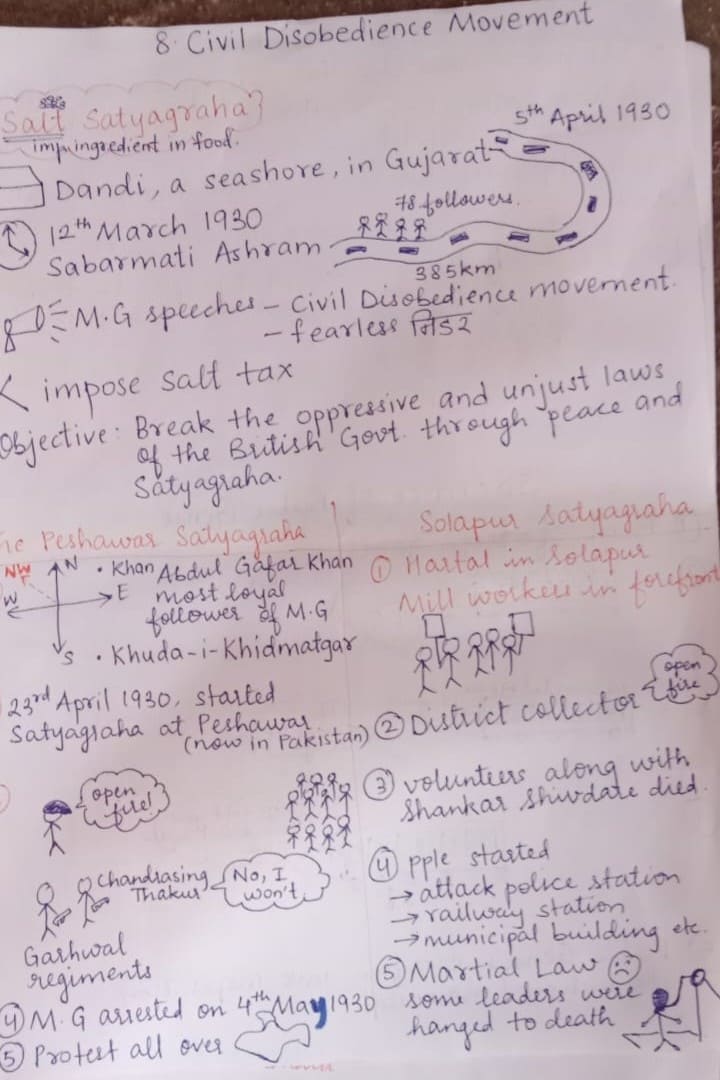 8. Civil Disobedience Movement
Salt Satyagraha}
imp. ingredient in food.
5th April 1930
Dandi, a seashore, in Gujarat
78 followers.
12th March 1930
Sabarmati Ashram
385km
M.G speeches - Civil Disobedience movement.
- fearless निडर
impose Salt tax
Objective: Break the oppressive and unjust laws
of the British Govt. through peace and
Satyagraha.
Peshawar Satyagraha
NW
N
W
E
S
• Khan Abdul Gafar Khan
most loyal
follower of M.G
• Khuda-i-Khidmatgar
23rd April 1930, started
Satyagraha at Peshawar
(now in Pakistan)
open
fire!
Chandrasing
Thakur
No, I
won't
Garhwal
regiments
④ M.G arrested on 4th May 1930
⑤ Protest all over
Solapur Satyagraha
① Hartal in Solapur
Mill workers in forefront
② District collector
open
fire
③ volunteers along with
Shankar Shivdare died.
④ pple started
→ attack police station
→ railway station
→ municipal building etc.
⑤ Martial Law
some leaders were
hanged to death